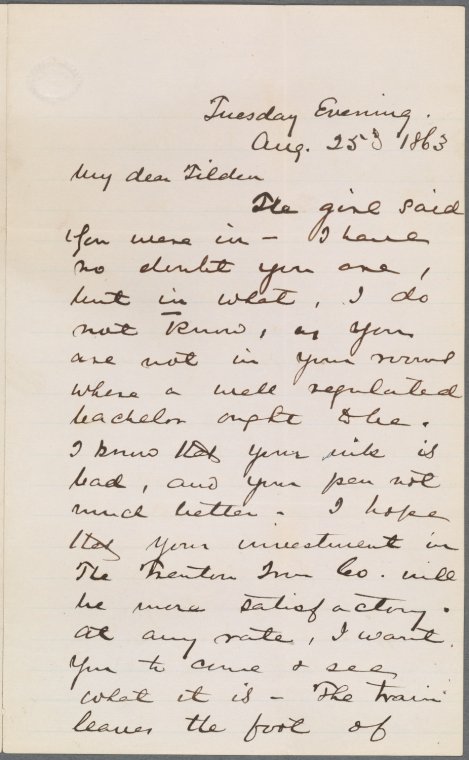 Tuesday Evening.
Aug. 25 1863
My dear Tilden
The girl said
you were in - I have
no doubt you are,
but in what, I do
not know, as you
are not in your rooms
where a well regulated
bachelor ought to be.
I know that your ink is
bad, and your pen not
much better - I hope
that your investment in
The Trenton Iron Co. will
be more satisfactory.
At any rate, I want
you to come & see
what it is - The train
leaves the foot of